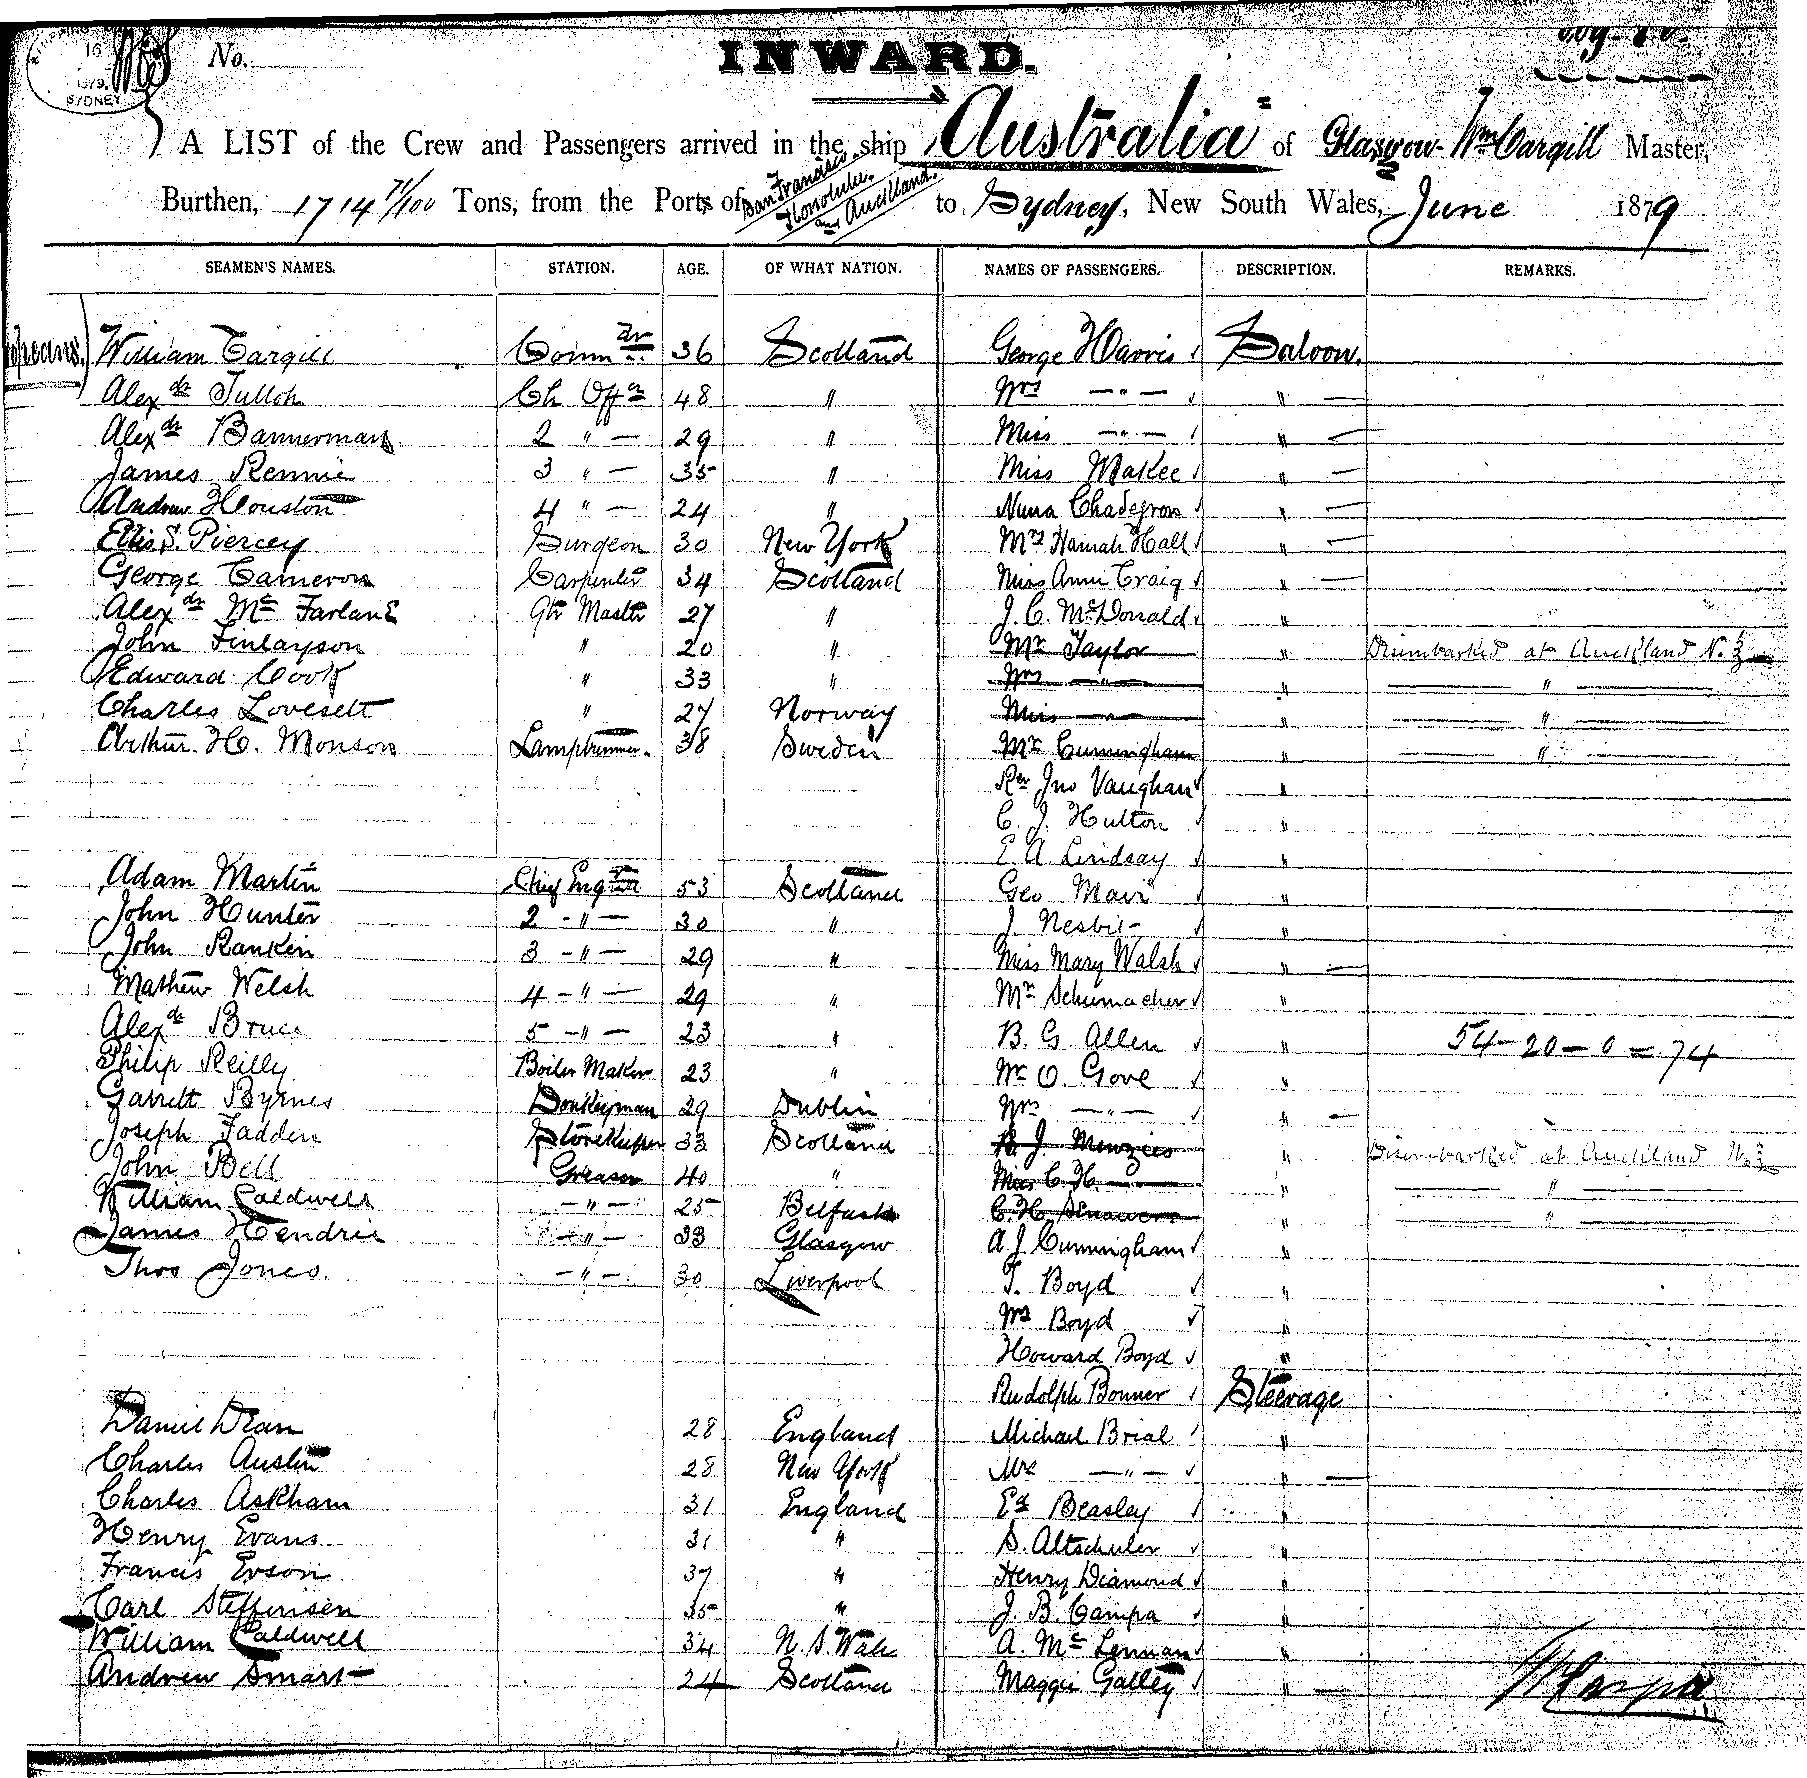 SHIPPING
16
1879.
SYDNEY
No.
INWARD.
A LIST of the Crew and Passengers arrived in the ship "Australia" of Glasgow Wm Cargill Master,
Burthen, 1714 71/100 Tons, from the Ports of San Francisco, Honolulu, and Auckland. to Sydney, New South Wales, June 1879
SEAMEN'S NAMES. STATION. AGE. OF WHAT NATION. NAMES OF PASSENGERS. DESCRIPTION. REMARKS.
William Cargill Comm dr 36 Scotland George Harris Saloon.
Alex dr Tulloh Ch Off er 48 " Mrs —"— " —
Alex dr Bannerman 2 " — 29 " Miss —"— " —
James Rennie 3 " — 35 " Miss Makee " —
Andrew Houston 4 " — 24 " Nuna " —
Ellis S. Piercey Surgeon 30 New York Mrs Hannah Hall " —
George Cameron Carpenter 34 Scotland Miss Annie Craig " —
Alex dr Mc Farlane Qtr Master 27 " J. C. McDonald "
John Finlayson " 20 " Mr Taylor " Disembarked at Auckland N.Z
Edward Cook " 33 " Mrs —"— " — " —
Charles Lovesett " 27 Norway Miss —"— " — " —
Arthur H. Monson Lamptrimmer. 38 Sweden Mr Cunningham " — " —
Rev Jno Vaughan "
C. J. Hulton "
E A Lindsay "
Adam Martin Chief Engineer 53 Scotland Geo Mair "
John Hunter 2 - " — 30 " J. Nesbit "
John Rankin 3 - " — 29 " Miss Mary Walsh " —
Mathew Welsh 4 - " — 29 " Mr Schumacher "
Alex dr Bruce 5 - " — 23 " B. G. Allen " 54-20-0=74
Philip Reilly Boiler Maker 23 " Mr O. Gove "
Garrett Byrnes Donkeyman 29 Dublin Mrs —"— " —
Joseph Fadden Storekeeper 33 Scotland J. Menzies " Disembarked at Auckland N.Z
John Bell Greaser 40 " Miss C. H. — " — " —
William Caldwell — " — 25 Belfast C. H. " — " —
James Hendrie — " — 33 Glasgow A J Cunningham "
Thos Jones. — " — 30 Liverpool T. Boyd "
Mrs Boyd "
Howard Boyd "
Rudolph Bonner Steerage
Daniel Dean 28 England Michael Brial "
Charles Austin 28 New York Mrs —"— " —
Charles Askham 31 England Ed Beasley "
Henry Evans 31 " S. Altschuler "
Francis Evson 37 " Henry Diamond "
Carl Steffensen 35 " J. B. Campa "
William Caldwell 34 N. S. Wales A. Mc Lennan "
Andrew Smart 24 Scotland Maggie Galley " —